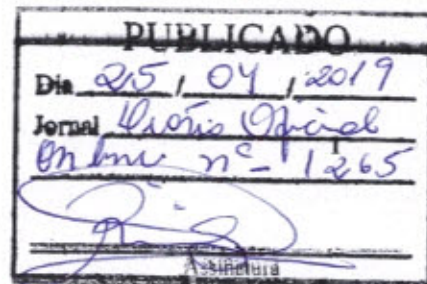 PUBLICADO
Dia 25 / 04 / 2019
Jornal Diário Oficial
On line nº- 1265
Assinatura